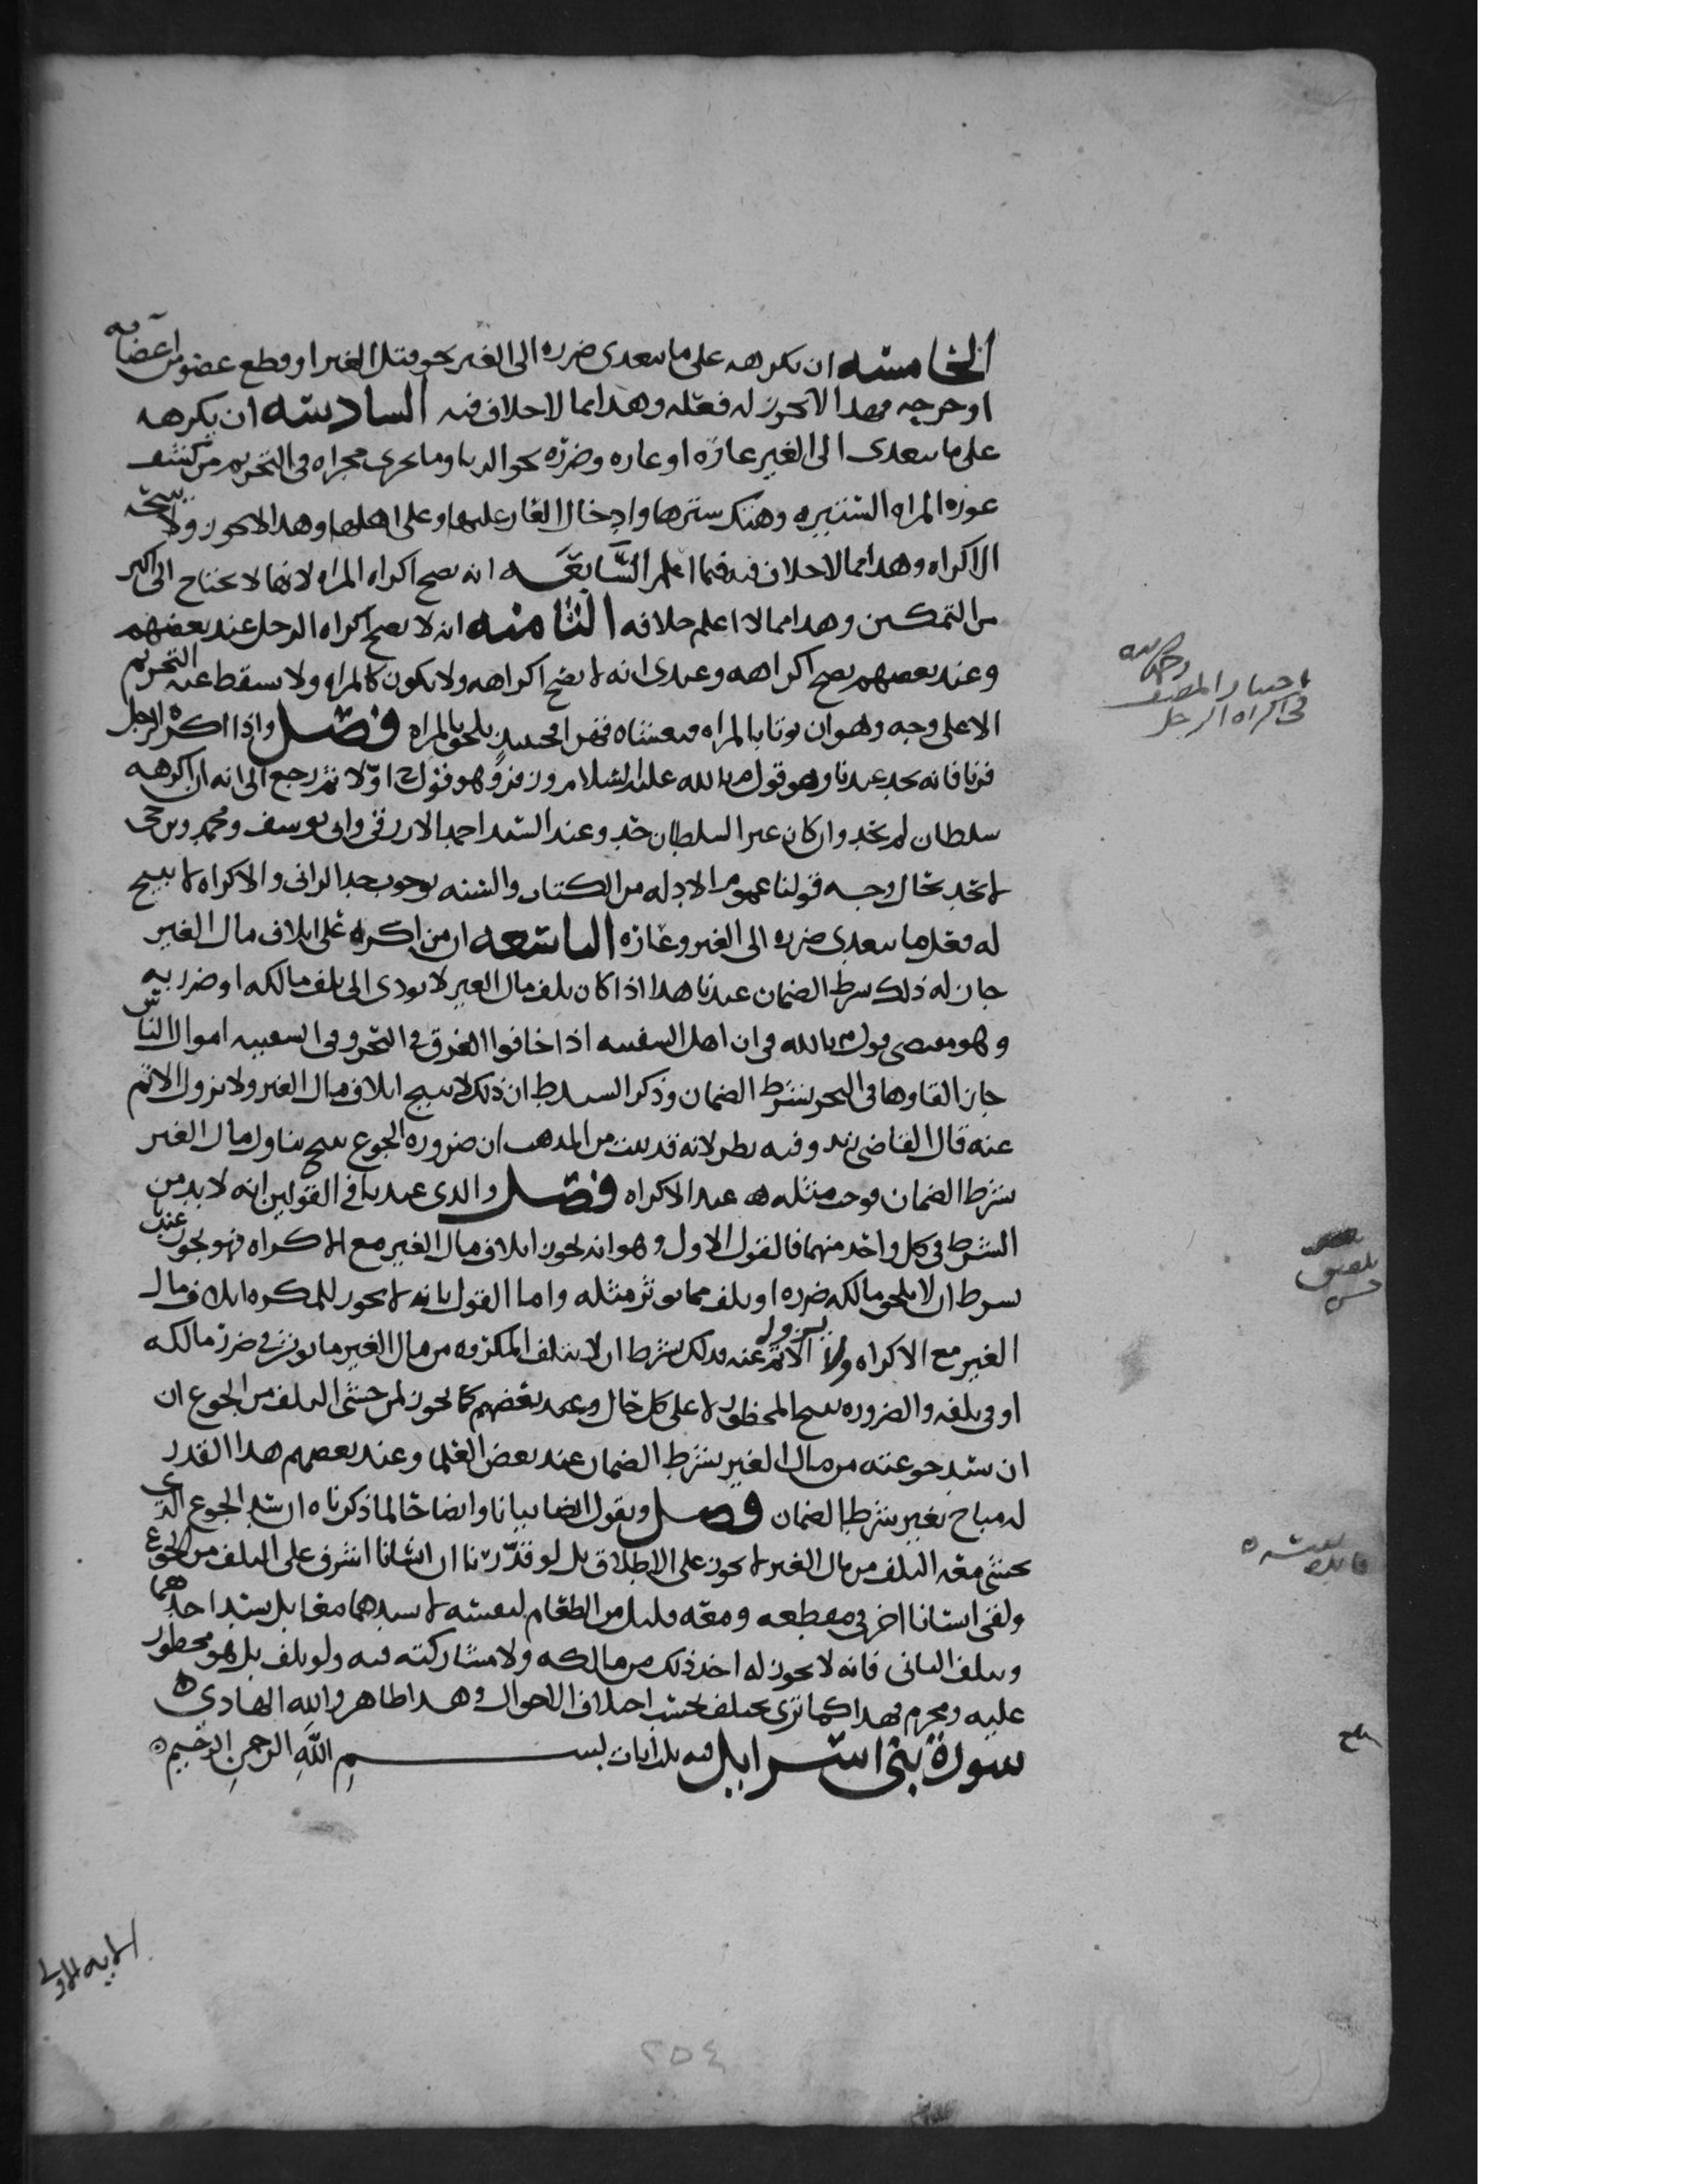 الخامسه ان يكرهه على ما يتعدى ضرره الى الغير نحو قتل الغير او قطع عضو من اعضائه
او جرحه فهذا لا يجوز له فعله وهذا مما لا خلاف فيه السادسه ان يكرهه
على ما يتعدى الى الغير عاره او عاره وضرره نحو الزنا وما يجري مجراه في التحريم من كشف
عورة المراه الستيره وهتك سترها وادخال العار عليها وعلى اهلها وهذا لا يجوز ولا يبيحه
الاكراه وهذا مما لا خلاف فيه فيما اعلم السابعه انه يصح اكراه المراه لانها لا تحتاج الى اكثر
من التمكين وهذا مما لا اعلم خلافه الثامنه انه لا يصح اكراه الرجل عند بعضهم
وعند بعضهم يصح اكراهه وعندي انه لا يصح اكراهه ولا يكون كالمراه ولا يسقط عنه التحريم
الا على وجه وهو ان يوتا بالمراه فهو حينئذ يلحق بالمراه فصل واذا اكره الرجل
فزنا فانه يحد عندنا وهو قول م بالله عليه السلام وزفر وهو قول ح اولا ثم رجع الى انه ان اكرهه
سلطان لم يحد وان كان غير السلطان حد وعند السيد احمد الازرقي وابي يوسف ومحمد وبن حي
لا يحد بحال وجه قولنا عموم الادله من الكتاب والسنه بوجوب حد الزاني والاكراه لا يبيح
له فعل ما يتعدى ضرره الى الغير وعاره التاسعه ان من اكره على اتلاف مال الغير
جاز له ذلك بشرط الضمان عندنا هذا اذا كان تلف مال الغير لا يودي الى تلف مالكه او ضرر به
وهو مقتضى قول م بالله في ان اهل السفينه اذا خافوا الغرق في البحر وفي السفينه اموال الناس
جاز القاوها في البحر بشرط الضمان وذكر السيد ط ان ذلك لا يبيح اتلاف مال الغير ولا يزول الاثم
عنه قال القاضي زيد وفيه نظر لانه قد ثبت من المذهب ان ضروره الجوع تبيح تناول مال الغير
بشرط الضمان فوجب مثله عند الاكراه فصل والذي عندنا في القولين انه لا بد من
الشرط في كل واحد منهما فالقول الاول وهو انه يجوز اتلاف مال الغير مع الاكراه فهو يجوز عندنا
بشرط ان لا يلحق مالكه ضرره او تلف مما يوثر مثله واما القول بانه لا يجوز للمكره اتلاف مال
الغير مع الاكراه ولا يزول الاثم عنه فذلك بشرط ان لا يتلف المكره من مال الغير ما يوثر في ضرر مالكه
او في تلفه والضروره تبيح المحظور لا على كل حال وعند بعضهم كما يجوز لمن خشي التلف من الجوع ان
ان سد جوعته من مال الغير بشرط الضمان عند بعض العلما وعند بعضهم هذا القدر
له مباح بغير شرط الضمان فصل ونقول ايضا بيانا وايضاحا لما ذكرناه ان سد الجوع الذي
يخشى معه التلف من مال الغير لا يجوز على الاطلاق بل لو قدرنا ان انسانا اشرف على التلف من الجوع
ولقي انسانا اخر في مقطعه ومعه قليل من الطعام لنفسه لا يسدهما معا بل يسد احدهما
ويتلف الثاني فانه لا يجوز له اخذ ذلك من مالكه ولا مشاركته فيه ولو تلف بل هو محظور
عليه ومحرم فهذا كما ترى يختلف بحسب اختلاف الاحوال وهذا ظاهر والله الهادي
سورة بني اسرايل فيه ايات بسم الله الرحمن الرحيم
اختيار المصنف رحمه الله
في اكراه الرجل
فايده
الايه الاولى
٢٥٤